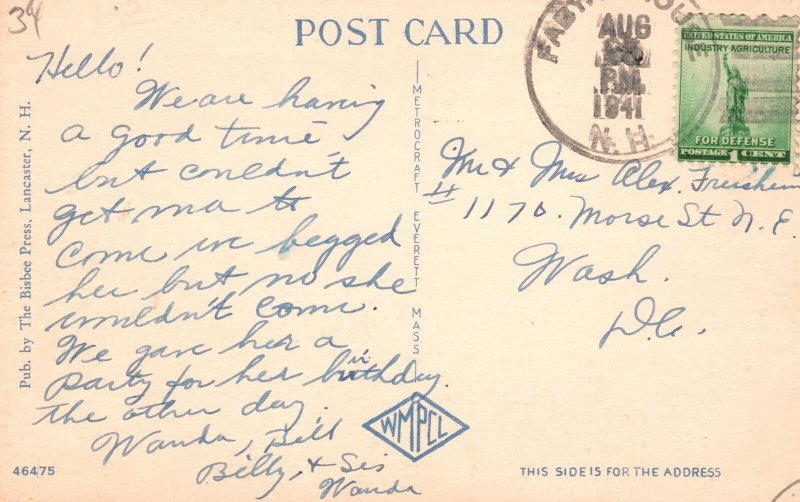 34
POST CARD
Hello!
We are having
a good time,
but couldn't
get ma to
come we begged
her but no she
wouldn't come.
We gave her a
party for her birthday
the other day.
Wanda, Bill
Billy, & Sis
Wanda
Pub. by The Bisbee Press, Lancaster, N. H.
METROCRAFT EVERETT MASS
WMPCL
46475
AUG
P.M.
1941
N. H.
UNITED STATES OF AMERICA
INDUSTRY-AGRICULTURE
FOR DEFENSE
POSTAGE 1 CENT
Mr & Mrs Alex.
# 1170. Morse St N. E.
Wash.
D.C.
THIS SIDE IS FOR THE ADDRESS